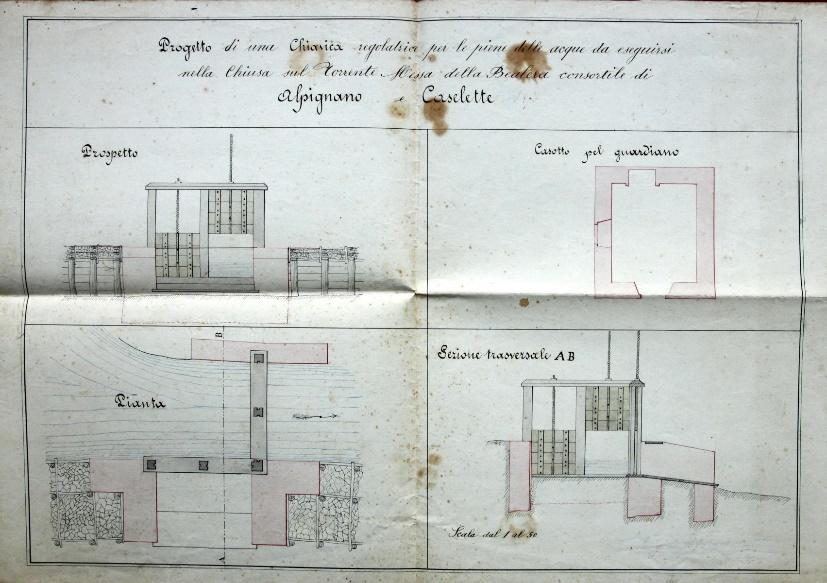 Progetto di una Chiavica regolatrice per le piene delle acque da eseguirsi
nella Chiusa sul Torrente Messa della Bealera consortile di
Alpignano e Caselette
Prospetto
Casotto pel guardiano
Pianta
B
A
Sezione trasversale AB
Scala dal 1 al 50